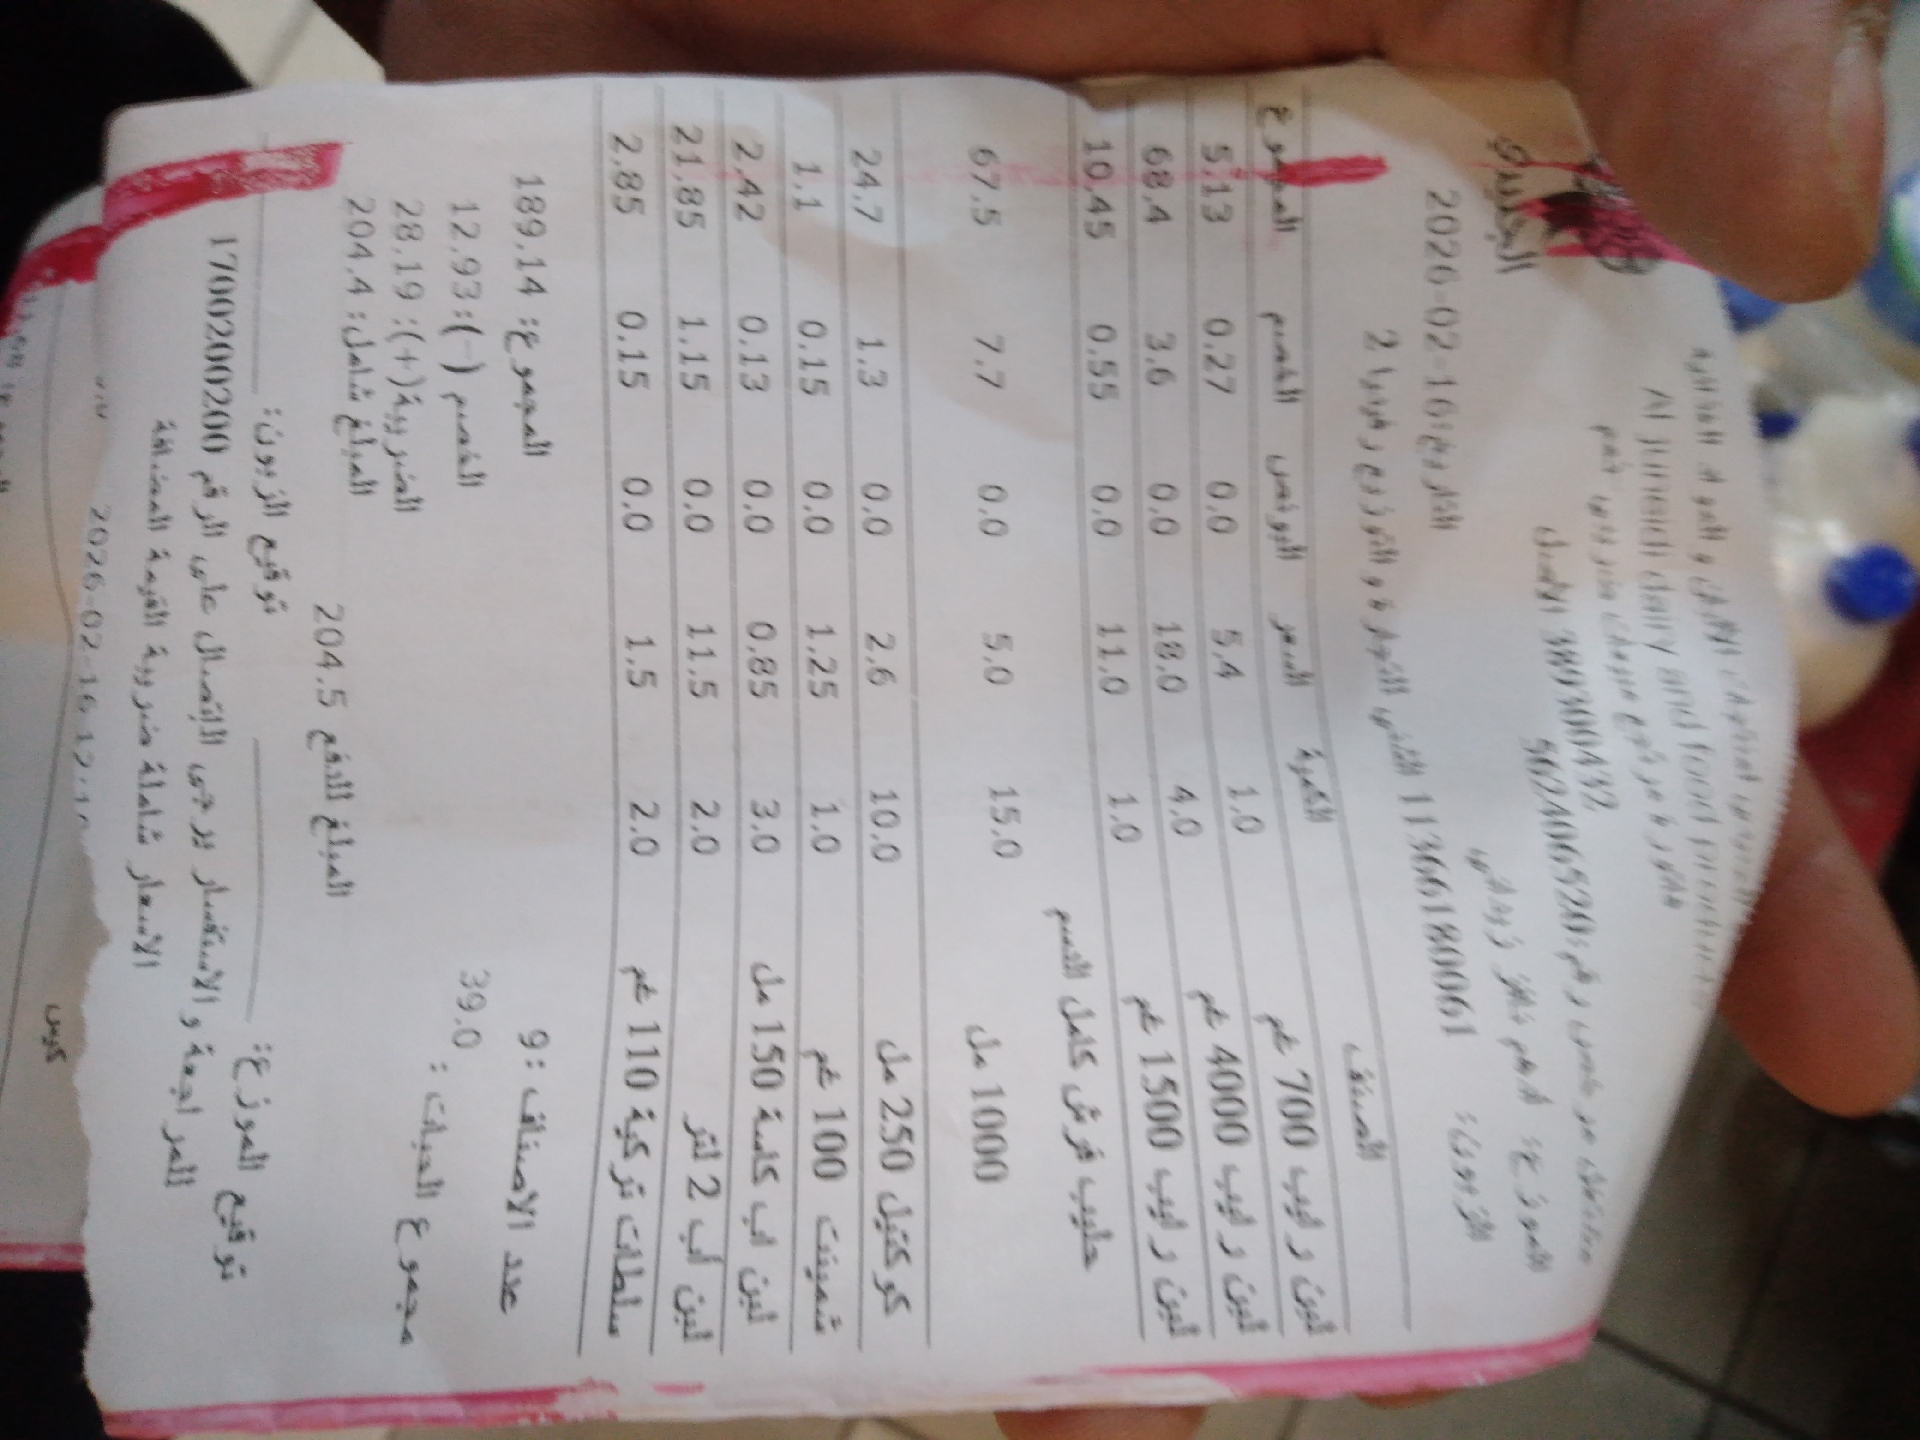 الجنيدي
Al Juneidi dairy and food products
فاتورة مرتجع مبيعات ضريبية خصم
مشتغل مرخص رقم: 562406520
389300432 الاصل
الموزع: ادهم
الزبون: 1136618006
التاريخ: 2026-02-16
الصنف الكمية السعر البونص الخصم المجموع
لبن رايب 700 غم 1.0 5.4 0.0 0.27 5.13
لبن رايب 4000 غم 4.0 18.0 0.0 3.6 68.4
لبن رايب 1500 غم 1.0 11.0 0.0 0.55 10.45
حليب فرش كامل الدسم
1000 مل 15.0 5.0 0.0 7.7 67.5
كوكتيل 250 مل 10.0 2.6 0.0 1.3 24.7
شمينت 100 غم 1.0 1.25 0.0 0.15 1.1
لبن اب كاسة 150 مل 3.0 0.85 0.0 0.13 2.42
لبن أب 2 لتر 2.0 11.5 0.0 1.15 21.85
سلطات تركية 110 غم 2.0 1.5 0.0 0.15 2.85
عدد الاصناف: 9 المجموع: 189.14
مجموع الحبات: 39.0 الخصم (-): 12.93
الضريبة(+): 28.19
المبلغ شامل: 204.4
المبلغ للدفع 204.5
توقيع الموزع: توقيع الزبون:
للمراجعة والاستفسار يرجى الإتصال على الرقم 1700200200
الاسعار شاملة ضريبة القيمة المضافة
2026-02-16
كيس